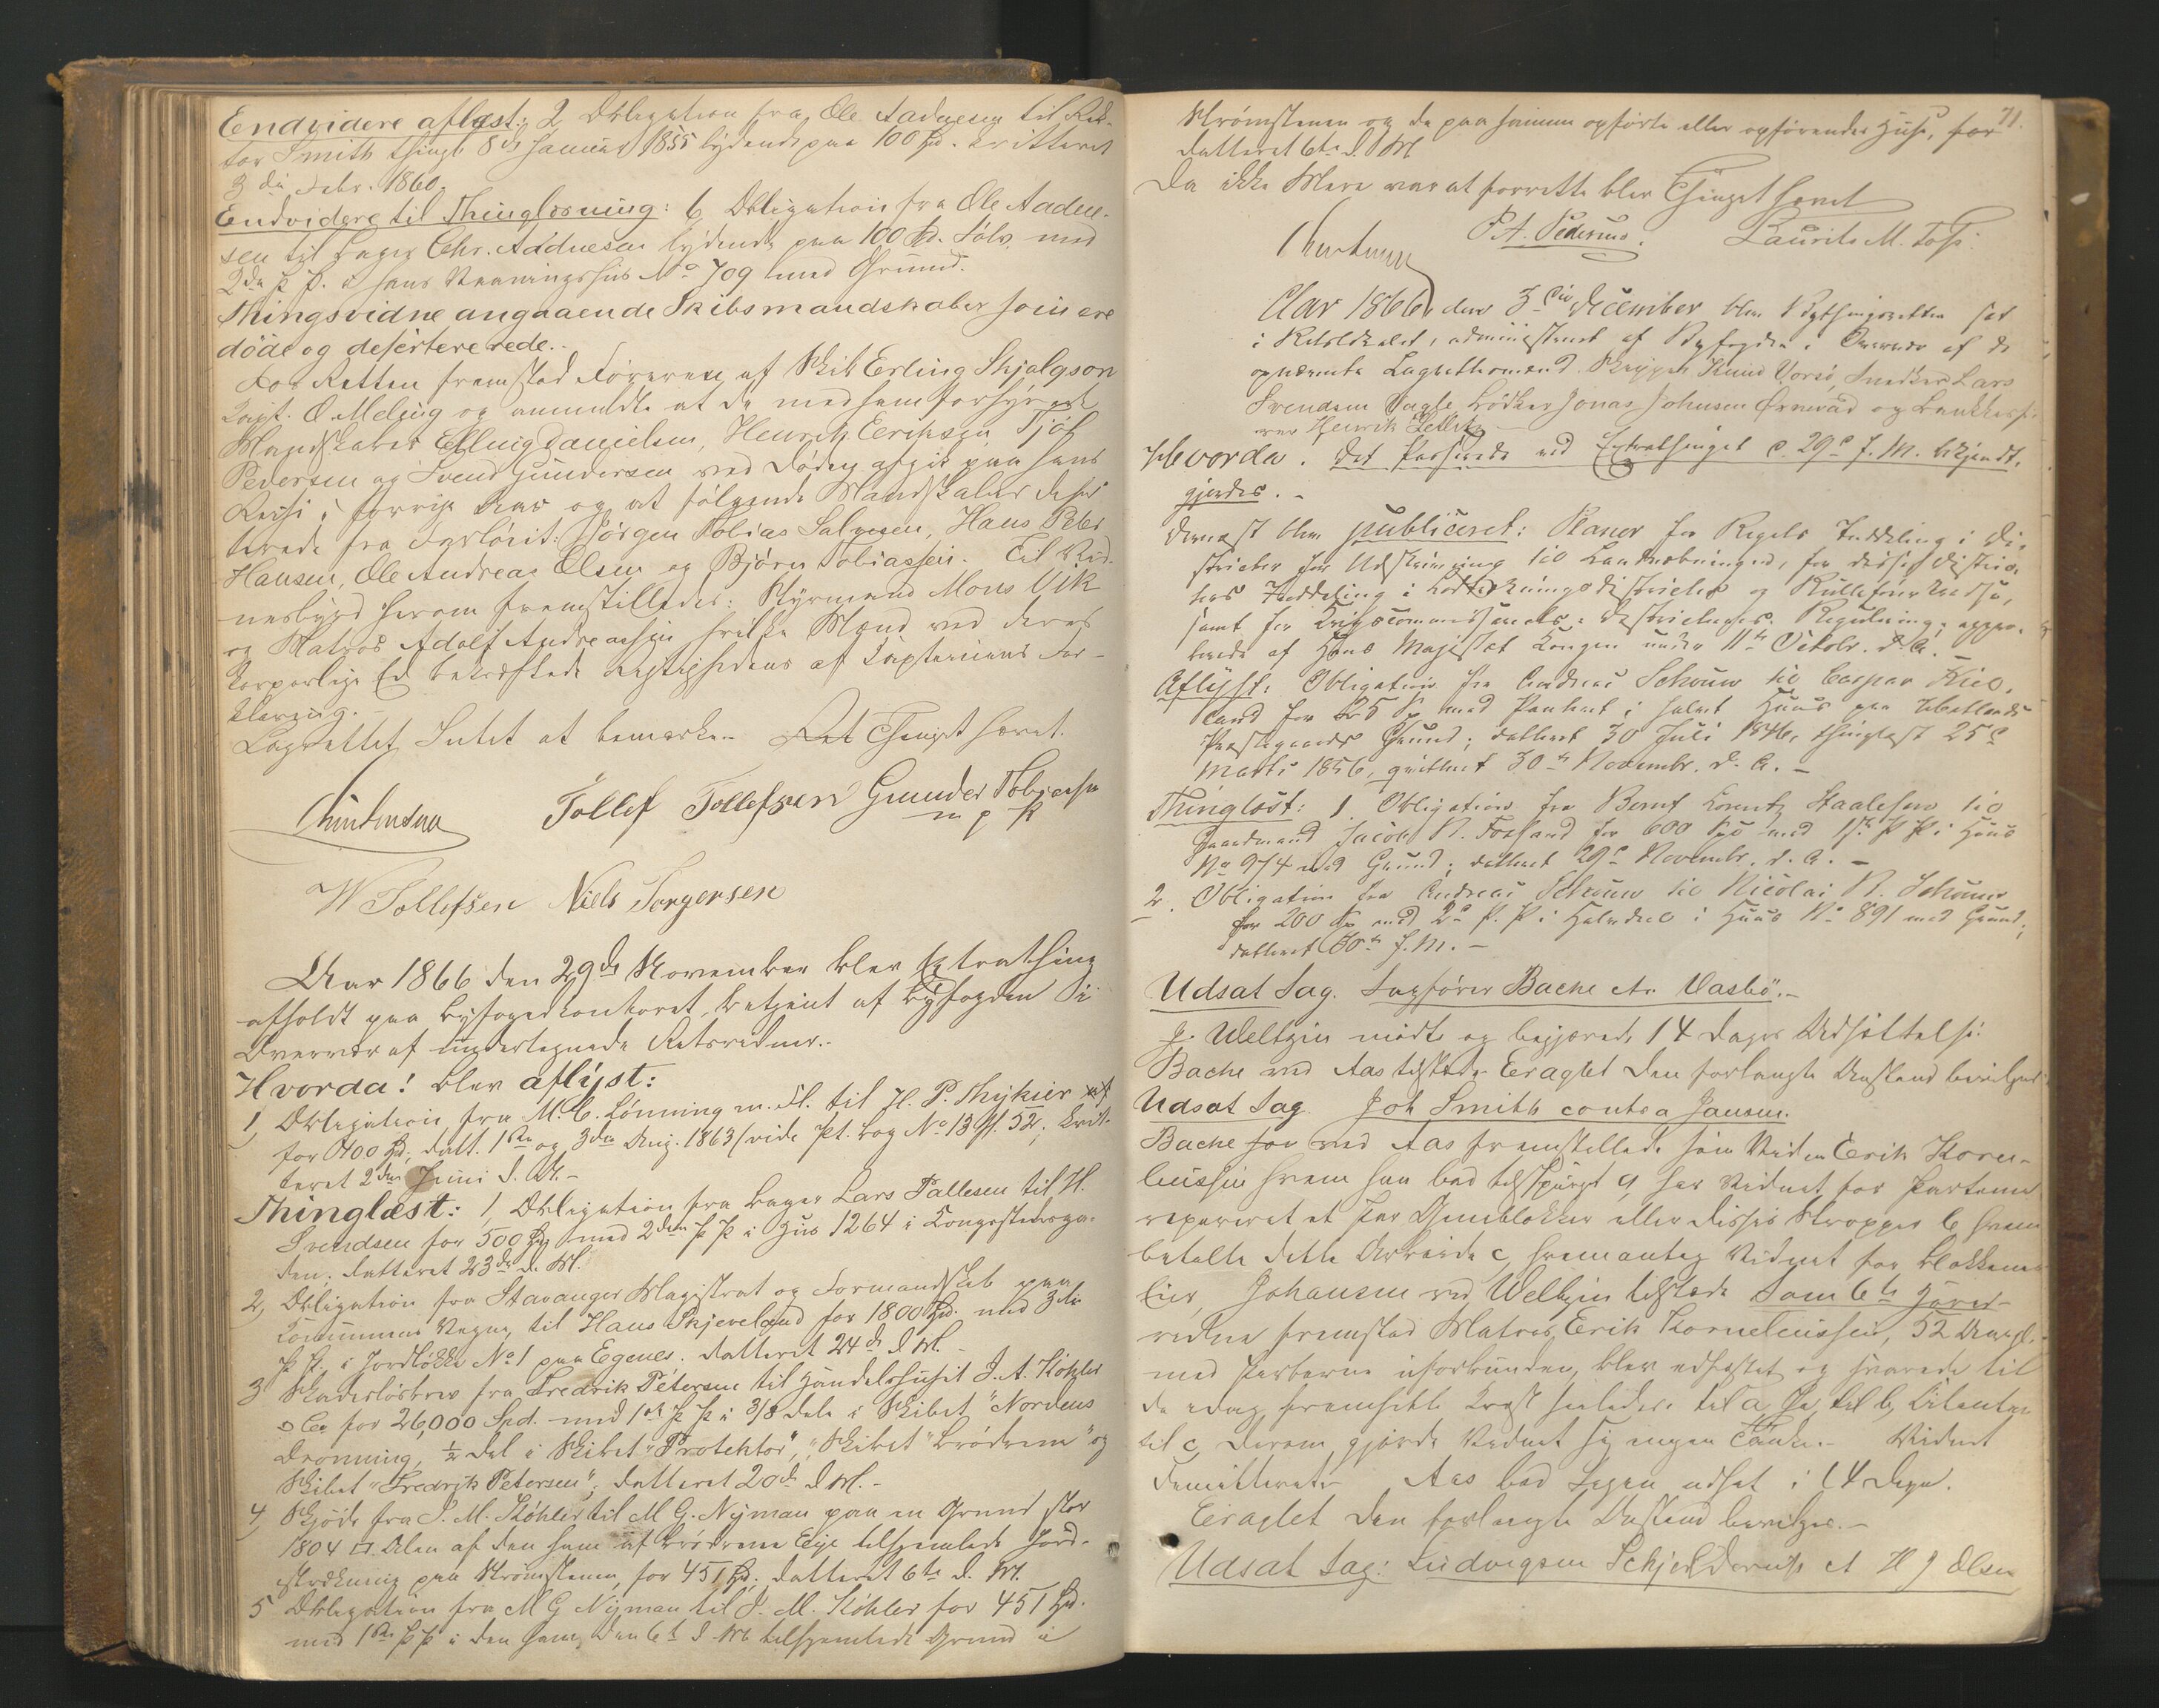 Endvidere aflæst: 2 Obligation fra Ole Aadnesen til Rek-
tor Smith thingl. 8de Januar 1855 lydende paa 100 Spd. kvitteret
3die Febr. 1860.
Endvidere til Thinglæsning: 6 Obligation fra Ole Aadne-
sen til Bager Chr. Aadnesen lydende paa 100 Spd. Sølv med
2den P. P. i hans Vaaningshus No 709 med Grund.
Thingsvidne angaaende Skibsmandskaber som ere
døde og desertererede.-
For Retten fremstod Føreren af Skib Erling Skjalgson
Capt. O. Meling og anmeldte at de med ham forhyrede
Mandskaber Elling Danielsen, Henrik Eriksen, Tjøl
Pedersen og Svend Gundersen ved Døden afgik paa hans
Reise i forrige Aar og at følgende Mandskaber deser-
terede fra : Jørgen Tobias Salvesen, Hans Peter
Hansen, Ole Andreas Olsen og Bjørn Tobiassen. Til Vid-
nesbyrd herom fremstilledes: Styrmand Mons Vik
og Matros Adolf Andreassen hvilke Mænd ved deres
korporlige Ed bekræftede Rigtigheden af Capteinens For-
klaring.-
Lagrettet Intet at bemærke.- Thinget hævet.
Christensen Tollef Tollefsen Gunder Tobiassen
m p P
W Tollefsen Niels Torgersen
Aar 1866 den 29de November blev Extrathing
afholdt paa Byfogedkontoret, betjent af Byfogden i
Overvær af undertegnede Retsvidner.-
Hvorda! blev aflyst:
1, Obligation fra M. C. Lønning m. Fl. til H. P. Thykier
for 400 Spd, datt. 1ste og 3die Aug. 1863 (vide Pt. bog No 13 Pl. 52, kvit-
teret 2den Juni d. A.-
Thinglæst: 1, Obligation fra Bager Lars Tallesen til H.
Svendsen for 500 Spd med 2den P P i Hus 1264 i Kongstedsga-
den, datteret 23de d. M.
2, Obligation fra Stavanger Magistrat og Formandskab paa
Kommunens Vegne, til Hans Skjeveland for 1800 Spd. med 3die
P P. i Jordløkke No 1 paa Egenes. datteret 24de d M.-
3 Skadesløsbrev fra Fredrik Petersen til Handelshuset J. A. Köhler
& Co for 26,000 Spd. med 1ste P P i 3/8 dele i Skibet "Nordens
Dronning, 1/2 del i Skibet "Protektor", Skibet "Brödrene" og
Skibet "Fredrik Petersen"; datteret 20de d M.-
4, Skjøde fra J. M. Köhler til M G. Nyman paa en Grund stor
1804 □ Alen af den ham af Brødrene Eije tilhjemlede Jord-
strækning paa Strømstenen, for 451 Spd; datteret 6te d. M.
5 Obligation fra M G Nyman til J. M. Köhler for 451 Spd.
med 1ste P P i den ham, den 6te d M tilhjemlede Grund i
71.
Strømstenen og de paa samme opførte eller opførendes Huse, for
datteret 6te d. M
Da ikke Mere var at forrette blev Thinget hævet
Christensen P. A. Pedersen. Laurits M. Toft
Aar 1866, den 3die December blev Bythingsretten sat
i Retslokalet, administreret af Byfogden i Overvær af de
opnævnte Lagrettesmænd Skipper Knud Vorsø, Snedker Lars
Svendsen Vagle, Bødker Jonas Johnsen Ørnevad og
Henrik
Hvorda. Det Passerede ved Extrathinget d. 29de f. M. bekjendt-
gjordes.-
Dernæst blev publiceret: Planer for Rigets Inddeling i Di-
stricter for Udskrivning til Landvæbningen, for disse Distric-
ters Inddeling i Lodtrækningsdistricter og Rulleførerkredse,
samt for Krigscommissairets-Districternes Regulering, appro-
berede af Hans Majestæt Kongen under 11te Octobr. d. A.-
Aflyst: Obligation fra Andreas Schouw til Caspar Kiel-
land for 25 Sp med Panteret i halvt Huus paa Hetlands
Præstegaards Grund; datteret 30 Juli 1846, thinglæst 25de
Marts 1856, qvitteret 30te Novembr. d. A.-
Thinglæst: 1. Obligation fra Bernt Lorentz Staalesen til
Gaardmand Jacob N. Fosand for 600 Spd med 1ste P P i Huus
No 974 med Grund; datteret 29de Novembr. d. A.-
2. Obligation fra Andreas Schouw til Nicolai N. Schouw
for 200 Sp med 2de P. P i Halvdeel i Huus No 891 med Grund;
datteret 30te f. M.-
Udsat Sag. Sagfører Bache ctr. Vasbö.-
J. Weltzin mødte og begjærede 14 Dages Udsættelse.
Bache ved Aas tilstede. Eragtet Den forlangte Anstand bevilges
Udsat Sag. Joh Smith contra Jansen.
Bache for ved Aas fremstillede som Vidne Erik Korne-
liussen hvem han bad tilspurgt a, har Vidnet for Partene
repareret et Par Gjneblokker eller disses Stropper b, hvem
betalte dette Arbeide c, hvem antog Vidnet for Blokkenes
Eier, Johansen ved Weltzin tilstede. Som 6te Hoved-
vidne fremstod Matros, Erik Korneliussen, 52 Aar gl.-
med Parterne uforbunden, blev edfæstet og svarede til
de idag fremsatte Qvæst saaledes: til a Ja, til b, Citanten
til c, derom gjorde Vidnet sig ingen Tanke.- Vidnet
demitteret. Aas bad Sagen udsat i 14 Dage.
Eragtet Den forlangte Anstand bevilges.-
Udsat Sag: Ludvigsen Schjelderup ct H J Olsen